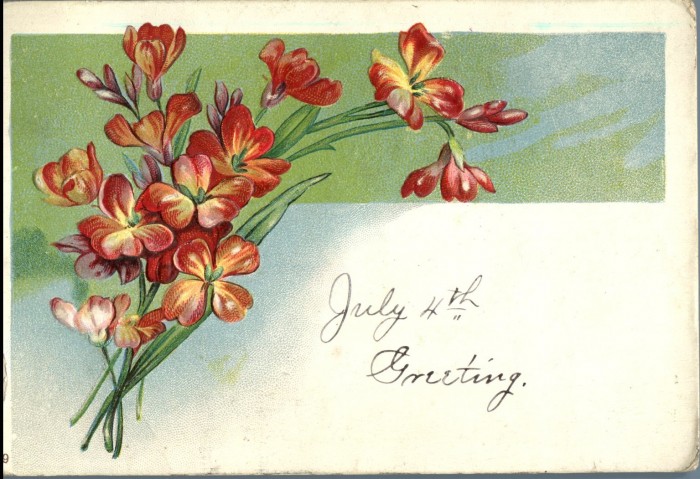 July 4th
Greeting.
9